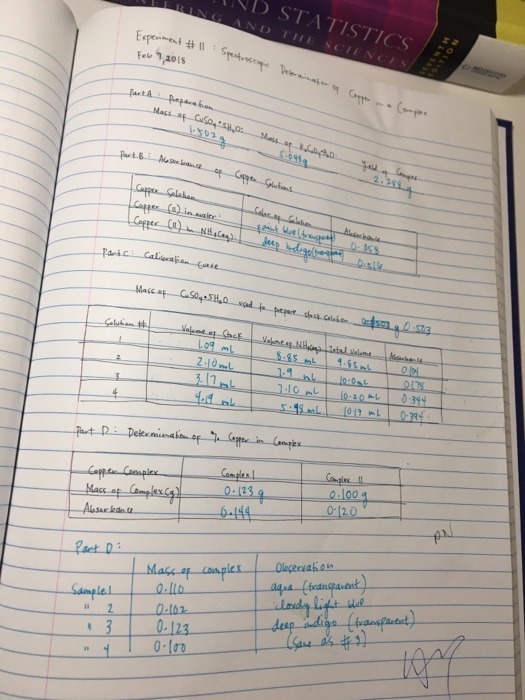 AND STATISTICS
ERING AND THE SCIENCES
EDITION
Experiment #11 : Spectroscopic Determination of Copper in a Complex
Feb 9, 2018
Part A: Preparation
Mass of CuSO4·5H2O: Mass of Yield of Complex
1.502 g 5.049 g 2.288 g
Part B: Absorbance of Copper Solutions
Copper Solution Color of Solution Absorbance
Copper (II) in water: faint blue (transparent) 0.058
Copper (II) in NH3(aq): deep indigo (transparent) 0.516
Part C: Calibration Curve
Mass of CuSO4·5H2O used to prepare stock solution g 0.503
Solution # Volume of Stock Volume of NH3(aq) Total Volume Absorbance
1 1.09 mL 8.85 mL 9.85 mL 0.101
2 2.10 mL 7.9 mL 10.0 mL 0.178
3 3.17 mL 7.10 mL 10.20 mL 0.344
4 4.19 mL 5.98 mL 10.17 mL 0.394
Part D: Determination of % Copper in Complex
Copper Complex Complex I Complex II
Mass of Complex (g) 0.123 g 0.100 g
Absorbance 0.144 0.120
Part D:
Mass of complex Observation
Sample 1 0.110 aqua (transparent)
" 2 0.102 cloudy light blue
" 3 0.123 deep indigo (transparent)
" 4 0.100 (same as #3)